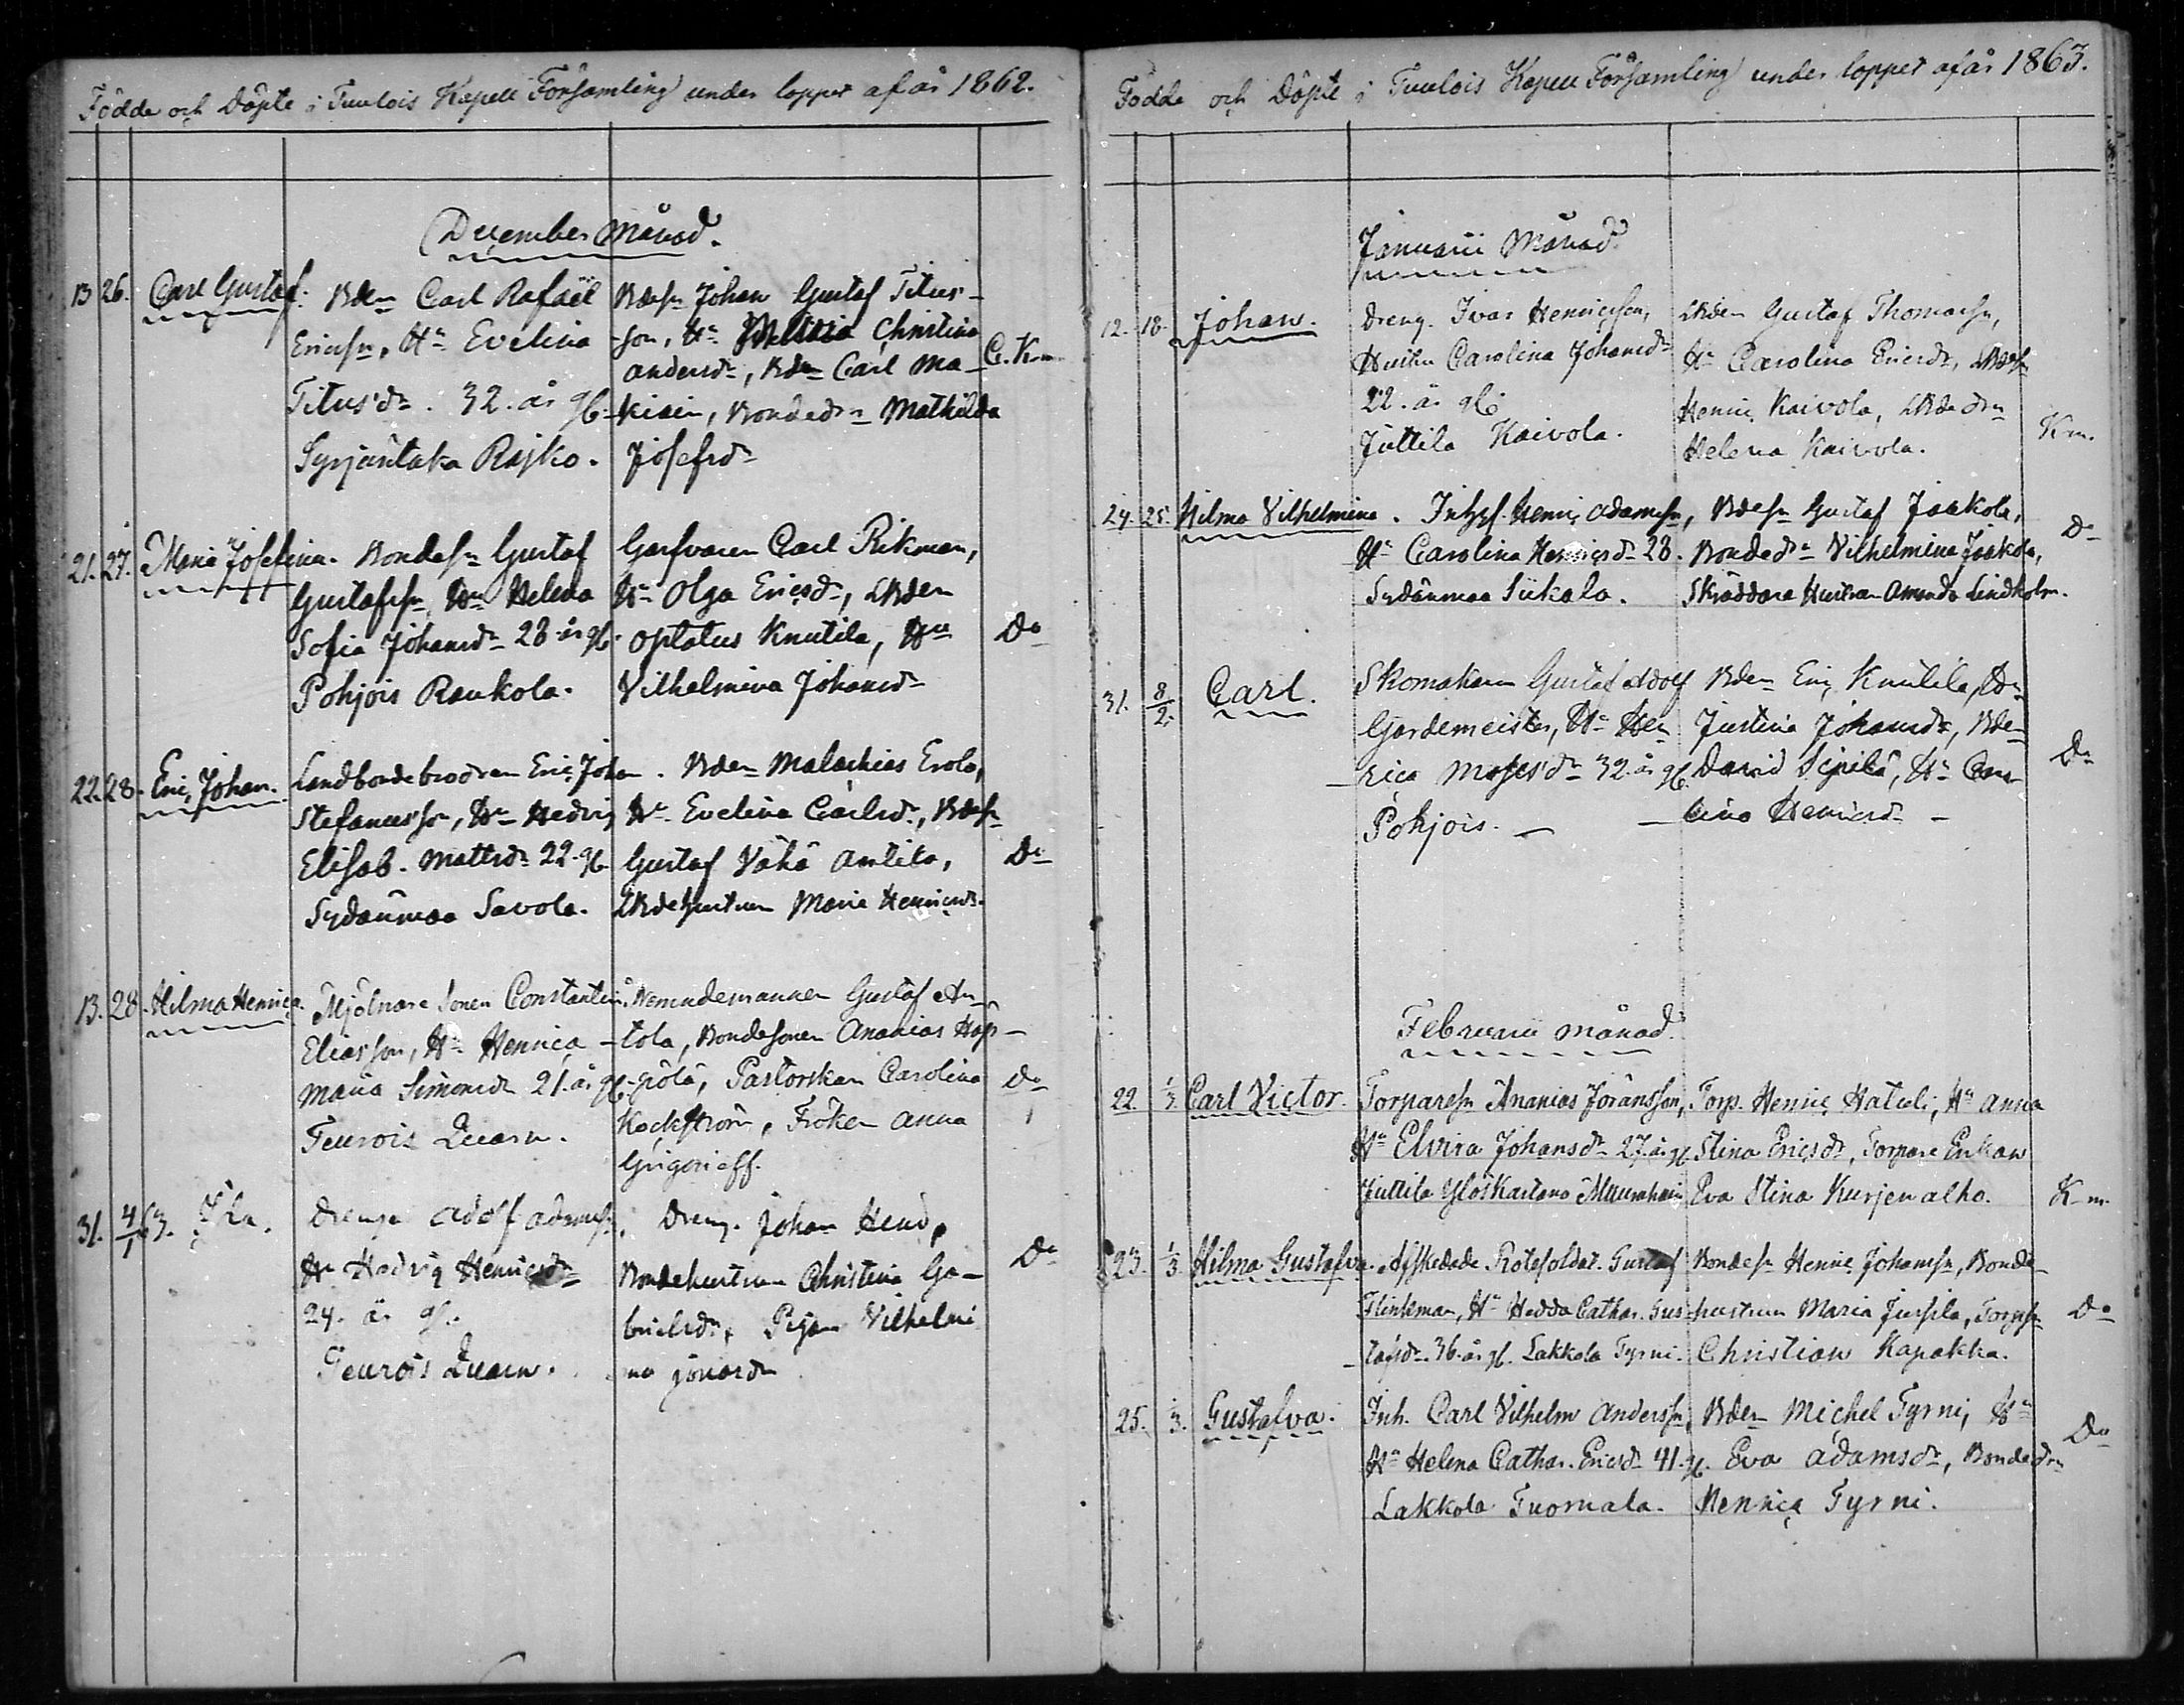 Födde och Döpte i Tuulois Kapell Församling under loppet af år 1862.
December Månad.
13 26. Carl Gustaf. Bden Carl Rafaël
Ericsn, Hu Evelina
Titusdr. 32. år gl.
Syrjäntaka Rajko.
Bdesn Johan Gustaf Titus-
son, Hu Christina
Andersdr, Bden Carl Ma-
Bondedr Mathilda
Josefsdr
C. Km
21. 27. Maria Josefina. Bondesn Gustaf
Gustafssn, Hu Helena
Sofia Johansdr 28 år gl.
Pohjois Raukola.
Garfvaren Carl Rikman,
Hu Olga Ericsdr, LBden
Optatus Knutila, Hu
Vilhelmina Johansdr
Do
22. 28. Eric Johan. Landbondebrodren Eric Johan
Stefanusson, Hu Hedvig
Elisab. Mattsdr 22. gl.
Sydänmaa Savola.
Bden Malachias Erola,
Hu Evelina Carlsdr, Bdesn
Gustaf Vähä Antila,
LBdehustrun Maria Henricsdr.
Do
13. 28. Hilma Henrica. Mjölnare Sonen Constantin
Eliasson, Hu Henrica
Maria Simonsdr 21. år gl.
Teurois Quarn.
Nemndemannen Gustaf An-
tola, Bondesonen Ananias Hop-
Pastorskan Carolina
Kockström, Fröken Anna
Grigorieff.
Do
31. 4/1 63. Ida. Drengen Adolf Adamsn,
Hu Hedvig Henricsdr
24. år gl.
Teurois Quarn.
Dreng. Johan Henr,
Bondehustrun Christina Ga-
brielsdr, Pigan Vilhelmi
na Jonasdr
Do
Födde och Döpte i Tuulois Kapell Församling under loppet af år 1863.
Januarii Månad.
12. 18. Johan. Dreng. Ivar Henricsson,
Hustru Carolina Johansdr
22. år gl.
Juttila Kaivola.
LBden Gustaf Thomassn,
Hu Carolina Ericsdr, LBdesn
Henric Kaivola, LBdedrn
Helena Kaivola.
Km.
24. 25. Hilma Vilhelmina. Inhys. Henric Adamssn,
Hu Carolina Henricsdr 28.
Sydänmaa Siikala.
Bdesn Gustaf Jaakola,
Bondedr Vilhelmina Jaakola,
Skräddare Hustrun Amanda Lindholm.
Do
31. 8/2. Carl. Skomakaren Gustaf Adolf
Gardemeister, Hu Hen
rica Mosesdr 32. år gl.
Pohjois.
Bden Eric Knutila, Hu
Justina Johansdr, Bden
David Sipilä, Hu Caro
lina Henricsdr
Do
Februarii månad.
22. 1/3 Carl Victor. Torparesn Ananias Joransson,
Hu Elvira Johansdr 27. år gl.
Juttila Ylöskartano
Torp. Henric Hatuli, Hu Anna
Stina Ericsdr, Torpare Enkan
Eva Stina Kurjenalho.
K-m.
23. 1/3. Hilma Gustafva. Afskedade Rotesoldat. Gustaf
Flinkman, Hu Hedda Cathar. Gus-
tafsdr. 36. år gl. Lakkola Tyrni.
Bondesn Henric Johanssn, Bonde-
hustrun Maria Jussila, Torpsn
Christian Kapakka.
Do
25. 1/3. Gustafva. Inh. Carl Vilhelm Anderssn,
Hu Helena Cathar. Ericsdr 41. gl.
Lakkola Tuomala.
Bden Michel Tyrni, Hu
Eva Adamsdr, Bondedrn
Henrica Tyrni.
Do